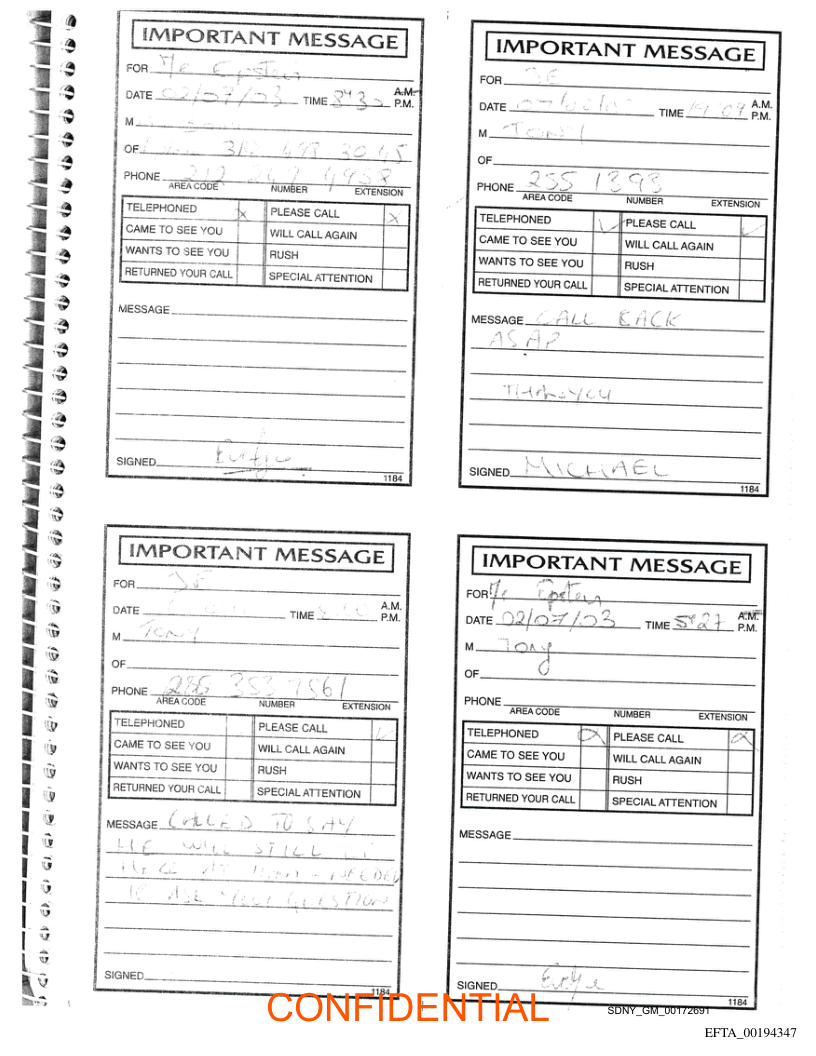 IMPORTANT MESSAGE
FOR Mr Epstein
DATE 02/07/03 TIME 8:30 A.M. P.M.
M
OF 312 498 3045
PHONE 212 249 4958
AREA CODE NUMBER EXTENSION
TELEPHONED x PLEASE CALL x
CAME TO SEE YOU WILL CALL AGAIN
WANTS TO SEE YOU RUSH
RETURNED YOUR CALL SPECIAL ATTENTION
MESSAGE
SIGNED
1184
IMPORTANT MESSAGE
FOR JE
DATE TIME 19 09 A.M. P.M.
M TONY
OF
PHONE 255 1393
AREA CODE NUMBER EXTENSION
TELEPHONED ✓ PLEASE CALL ✓
CAME TO SEE YOU WILL CALL AGAIN
WANTS TO SEE YOU RUSH
RETURNED YOUR CALL SPECIAL ATTENTION
MESSAGE CALL BACK
ASAP
THANK YOU
SIGNED MICHAEL
1184
IMPORTANT MESSAGE
FOR JE
DATE TIME A.M. P.M.
M TONY
OF
PHONE 286 353 7561
AREA CODE NUMBER EXTENSION
TELEPHONED PLEASE CALL ✓
CAME TO SEE YOU WILL CALL AGAIN
WANTS TO SEE YOU RUSH
RETURNED YOUR CALL SPECIAL ATTENTION
MESSAGE CALLED TO SAY
HE WILL STILL
NEEDED
ASK YOU QUESTION
SIGNED
1184
IMPORTANT MESSAGE
FOR Mr Epstein
DATE 02/07/03 TIME 5:27 A.M. P.M.
M Tony
OF
PHONE
AREA CODE NUMBER EXTENSION
TELEPHONED x PLEASE CALL x
CAME TO SEE YOU WILL CALL AGAIN
WANTS TO SEE YOU RUSH
RETURNED YOUR CALL SPECIAL ATTENTION
MESSAGE
SIGNED
1184
CONFIDENTIAL
SDNY_GM_00172691
EFTA_00194347